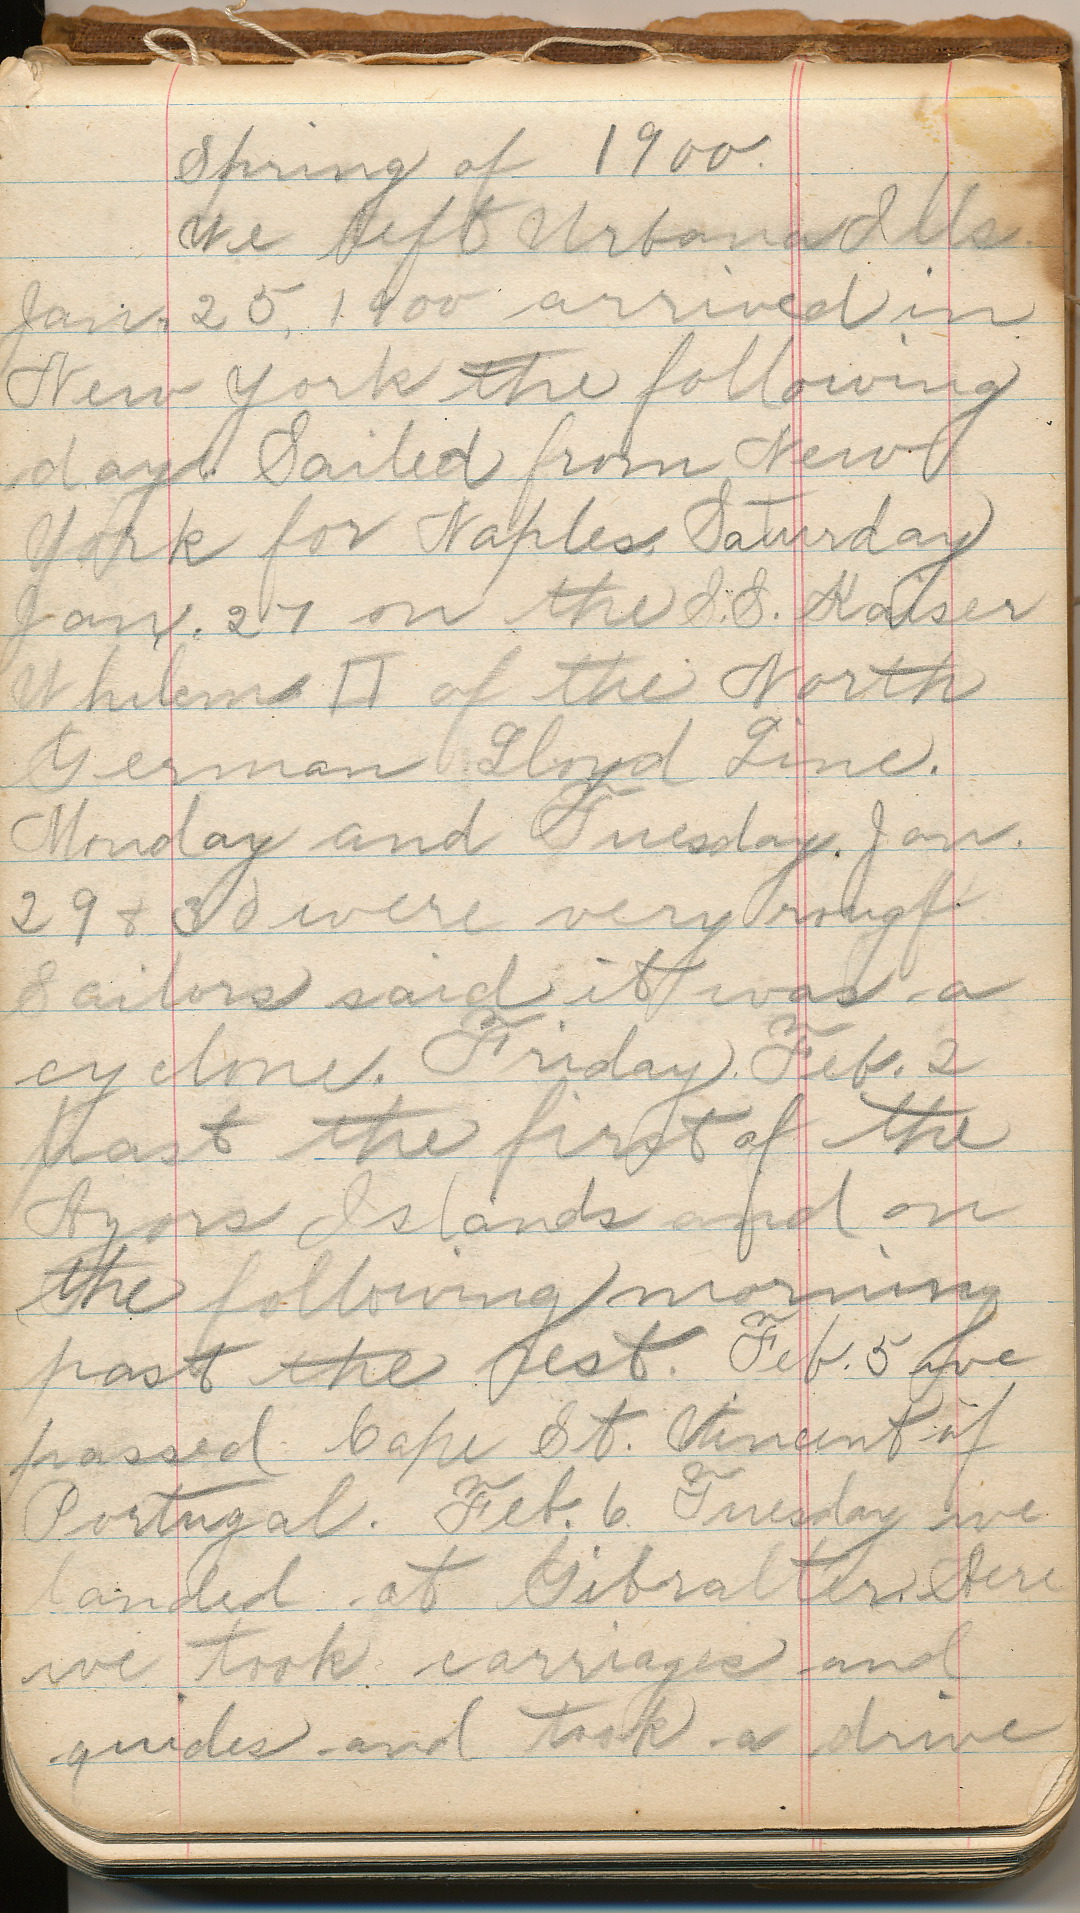 Spring of 1900.
We left Urbana Ills.
Jan. 25, 1900 arrived in
New York the following
day. Sailed from New
York for Naples. Saturday
Jan. 27 on the S.S. Kaiser
Whilem II of the North
German Lloyd Line.
Monday and Tuesday. Jan.
29 + 30 were very rough
Sailors said it was a
cyclone. Friday. Feb. 2
past the first of the
Azors Islands and on
the following morning
past the rest. Feb. 5 we
passed Cape St. Vincent of
Portugal. Feb. 6 Tuesday we
landed at Gibralter. Here
we took carriages and
guides and took a drive